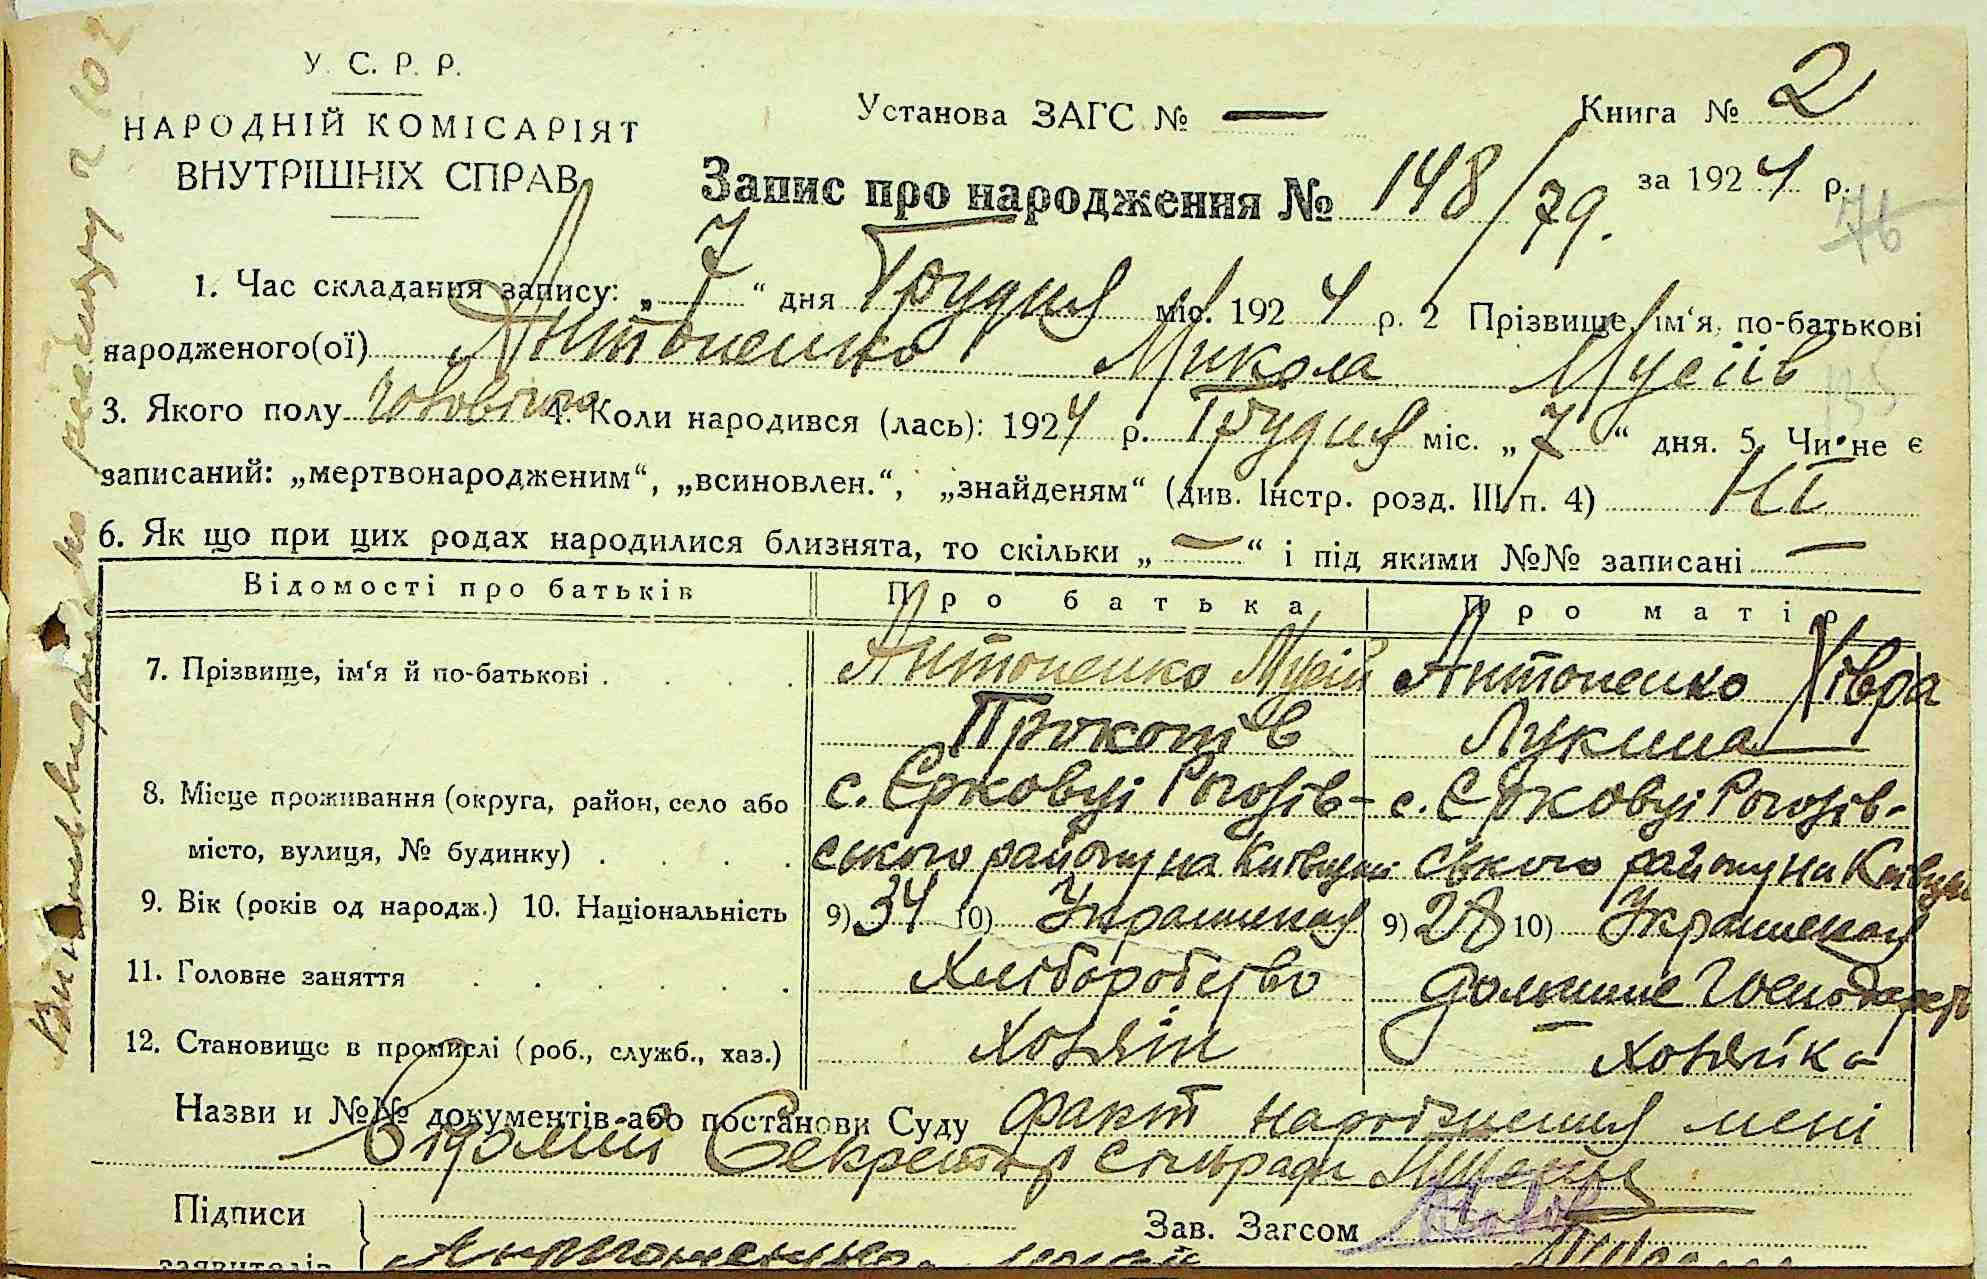 У. С. Р. Р.
НАРОДНІЙ КОМІСАРІЯТ
ВНУТРІШНІХ СПРАВ
Установа ЗАГС № —
Книга № 2
Запис про народження № 148/79.
за 1924 р.
76
1. Час складання запису: „7“ дня Грудня міс. 1924 р. 2 Прізвище, ім‘я, по-батькові
народженого(ої) Антоненко Микола Мусіїв
3. Якого полу Чоловічого 4. Коли народився (лась): 1924 р. Грудня міс. „7“ дня. 5. Чи не є
записаний: „мертвонародженим“, „всиновлен.“, „знайденям“ (див. Інстр. розд. III п. 4) Ні
6. Як що при цих родах народилися близнята, то скільки „—“ і під якими №№ записані —
Відомості про батьків Про батька Про матір
7. Прізвище, ім‘я й по-батькові Антоненко Мусій Антоненко Хівра
Прокопів Лукина
8. Місце проживання (округа, район, село або с. Єрковці Рогозів- с. Єрковці Рогозів-
місто, вулиця, № будинку) ського району на Київщині ського району на Київщині
9. Вік (років од народж.) 10. Національність 9) 34 10) Українська 9) 28 10) Українська
11. Головне заняття Хліборобство Домашнє Господарст
12. Становище в промислі (роб., служб., хаз.) Хозяїн Хозяйка
Назви и №№ документів або постанови Суду Факт народження мені
відомий Секретар сільради
Підписи
заявителів Антоненко
Зав. Загсом